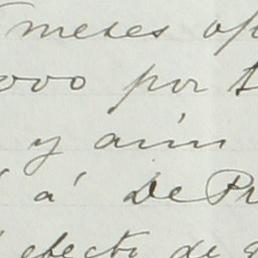 meses
000 por
y aún
á De Pr
efecto de